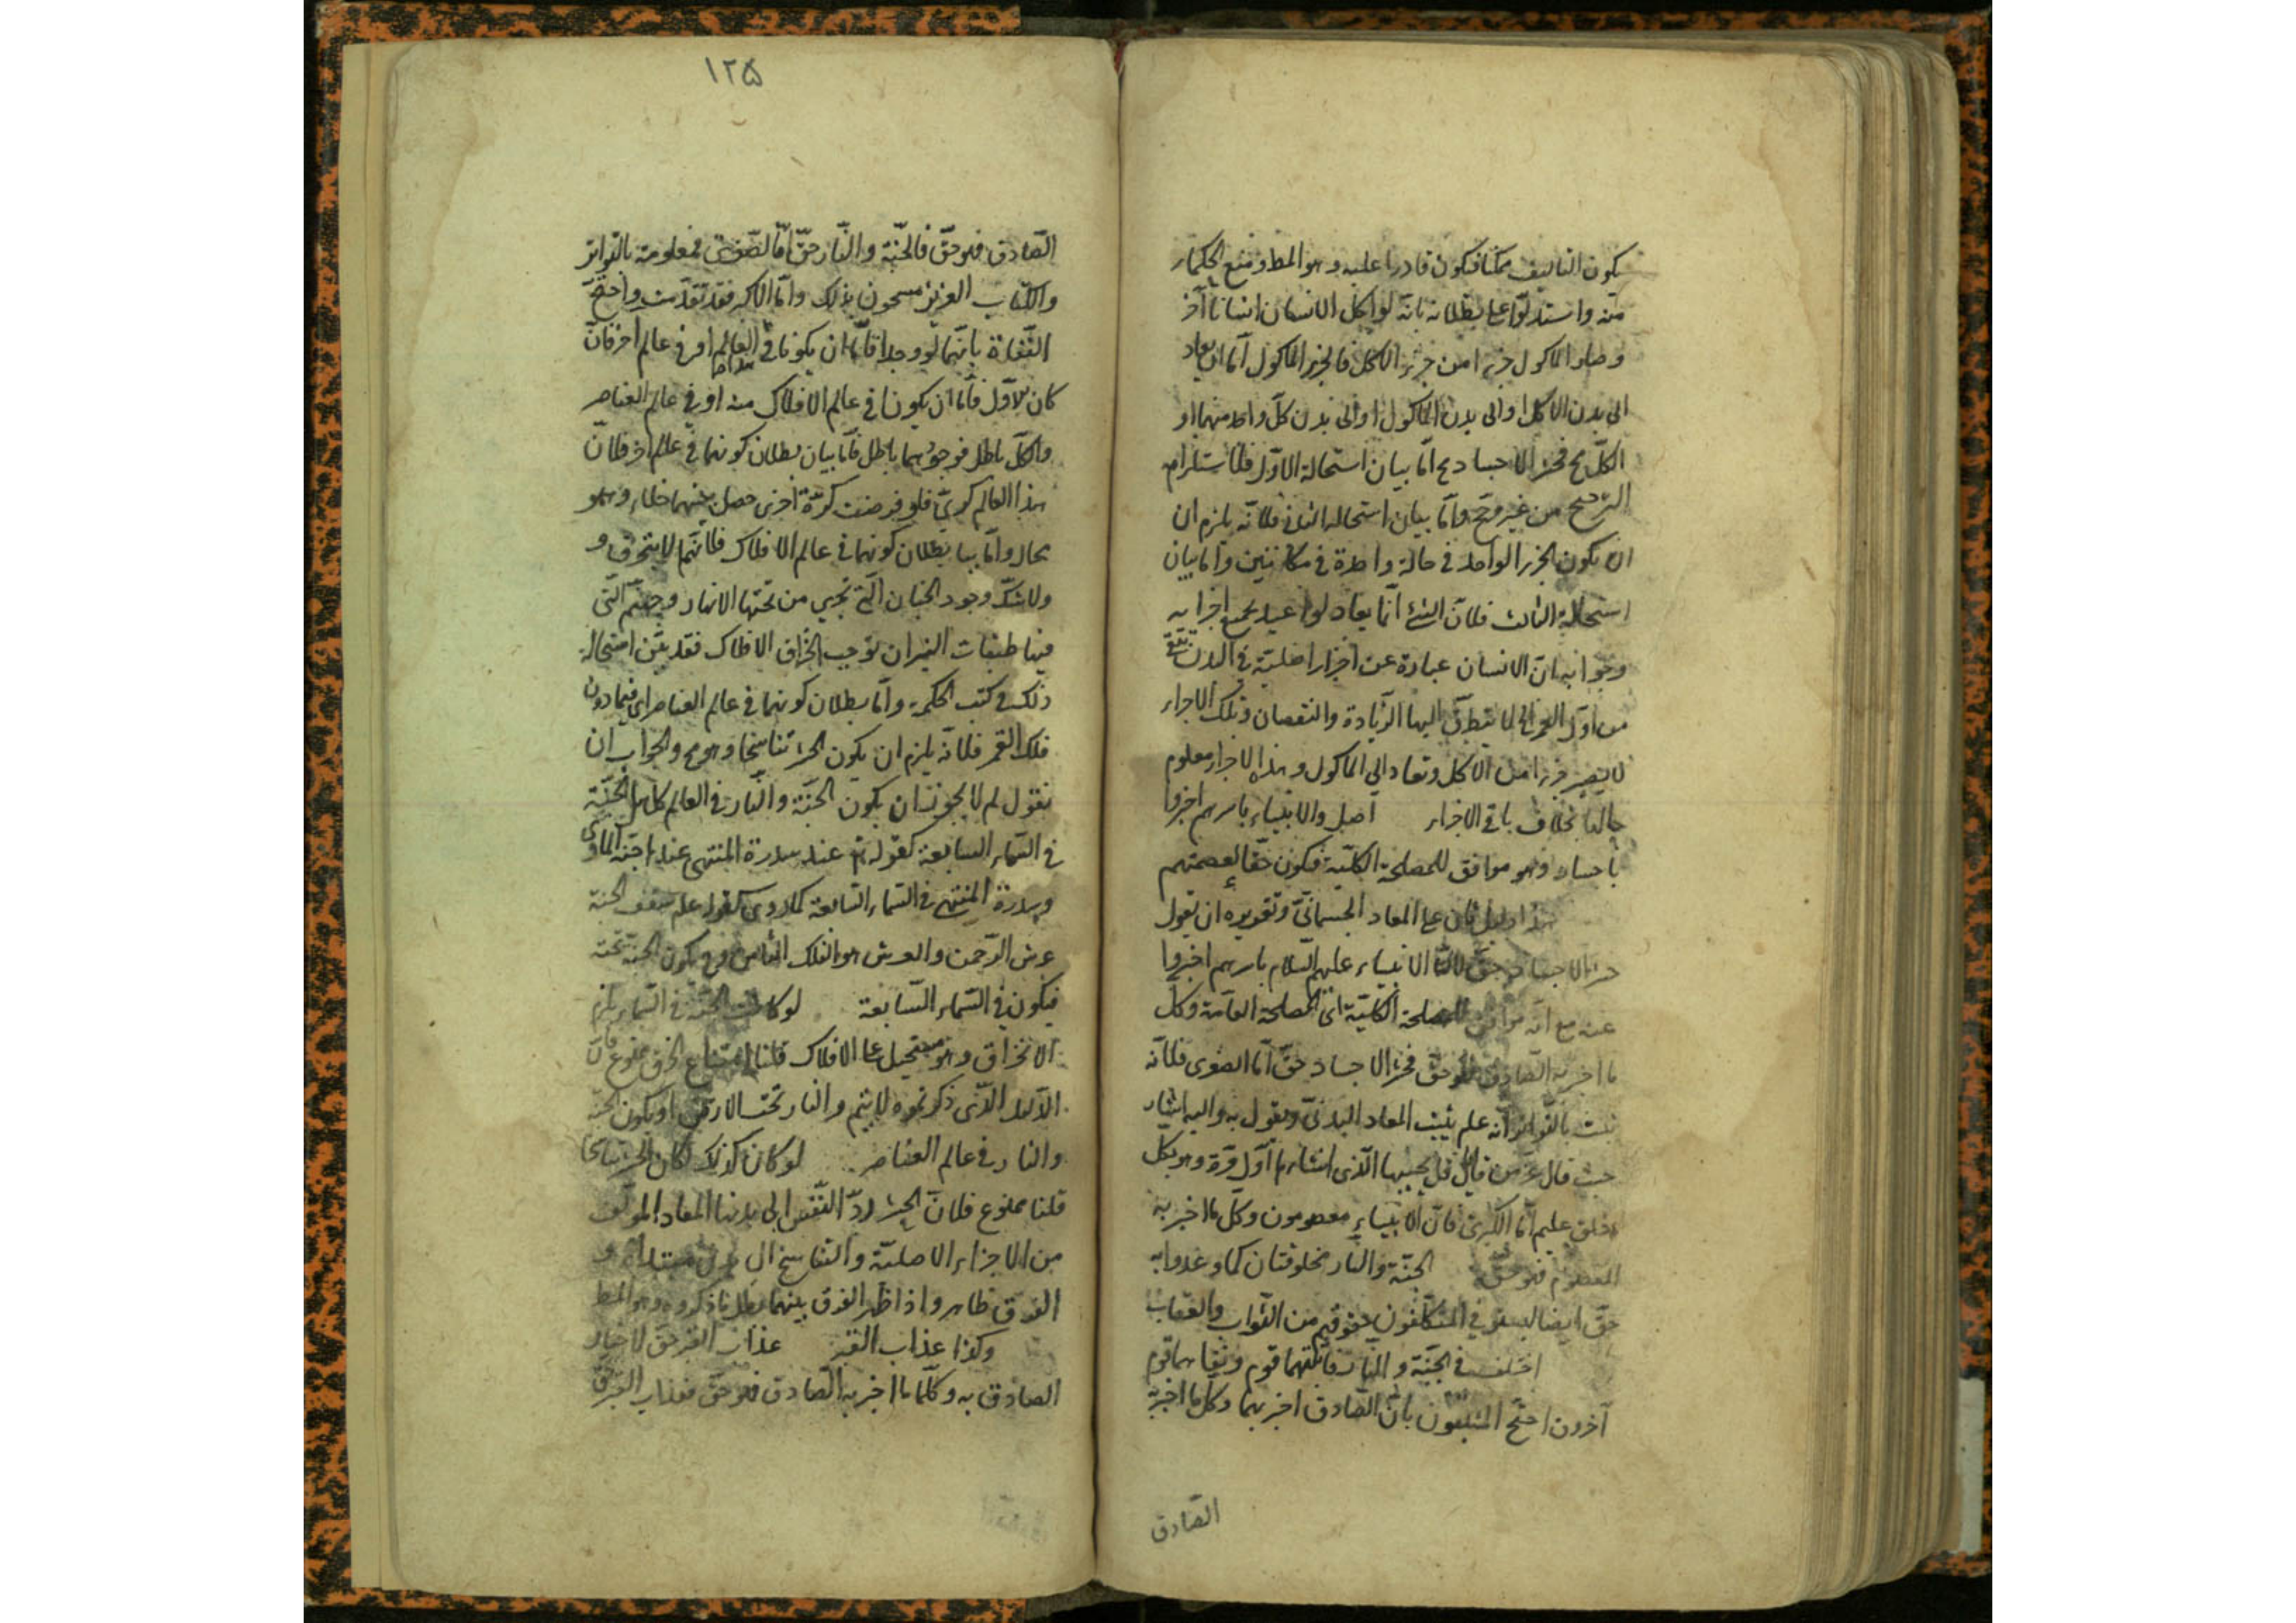 يكون التاليف ممكنا فيكون قادرا عليه وهو المط ومنع الحكماء
منه واستدلوا على بطلانه بانه لو اكل الانسان انسانا آخر
وصار الماكول جزءا من جزء الاكل فالجزء الماكول اما ان يعاد
الى بدن الاكل او الى بدن الماكول او الى بدن كل واحد منهما او
الكل مح فحشر الاجساد مح اما بيان استحالة الاول فلاستلزام
الترجيح من غير مرجح واما بيان استحالة الثانى فلانه يلزم ان
ان يكون الجزء الواحد فى حالة واحدة فى مكانين واما بيان
استحالة الثالث فلان الشئ انما يعاد لو اعيد بجميع اجزايه
وجوابه ان الانسان عبارة عن اجزاء اصلية فى البدن
من اول العمر الى لا يتطرق اليها الزيادة والنقصان وتلك الاجزاء
لا يصير جزءا من الاكل وتعاد الى الماكول وهذا الاجزاء معلوم
حالها بخلاف باقى الاجزاء اصل والانبياء باسرهم اخبروا
باحساد وهو موافق للمصلحة الكلية فيكون حقا لعصمتهم
هذا دليل ثان على المعاد الجسمانى وتقريره ان يقول
حشر الاجساد حق لان الانبياء عليهم السلام باسرهم اخبروا
عنه مع انه موافق للمصلحة الكلية اى المصلحة العامة وكل
ما اخبر به الصادق فهو حق فحشر الاجساد حق اما الصغرى فلانه
ثبت بالتواتر انه علم يثبت المعاد البدنى ويقول به واليه اشار
حيث قال عز من قائل قل يحييها الذى انشاها اول مرة وهو بكل
خلق عليم اما الكبرى فان الانبياء معصومون وكل ما اخبر به
المعصوم فهو حق الجنة والنار مخلوقتان كما وعدوا به
حق ايضا ليستوفي المكلفون حقوقهم من الثواب والعقاب
اختلف فى الجنة والنار فاثبتهما قوم ونفاهما قوم
آخرون احتج المثبتون بان الصادق اخبر بهما وكل ما اخبر به
الصادق
١٢٥
الصادق فهو حق فالجنة والنار حق اما الصغرى فمعلومة بالتواتر
والكتاب العزيز مسحون بذلك واما الاكبر فقد تقدمت واحتج
النفاة بانهما لو وجدا فاما ان يكونا فى العالم او فى عالم اخر فان
كان الاول فاما ان يكونا فى عالم الافلاك منه او فى عالم العناصر
والكل باطل فوجودهما باطل فاما بيان بطلان كونهما فى عالم اخر فلان
هذا العالم كرى فلو فرضت كرة اخرى حصل بينهما خلاء وهو
محال واما بيا بطلان كونهما فى عالم الافلاك فلانها لا يتخرق و
ولا شك وجود الجنان التى تجرى من تحتها الانهار وجهنم التى
فيها طبقات النيران توجب انخراق الافلاك فقد بين استحالة
ذلك فى كتب الحكمة واما بطلان كونهما فى عالم العناصر اى فيما دون
فلك القمر فلانه يلزم ان يكون الحشر تناسخا وهو مح والجواب ان
نقول لم لا يجوز ان يكون الجنة والنار فى العالم كان الجنة
فى السماء السابعة كقوله تع عند سدرة المنتهى عندها جنة الماوى
وسدرة المنتهى فى السماء السابعة كما روى كقوله علم سقف الجنة
عرش الرحمن والعرش هو الفلك الثامن فح يكون الجنة تحته
فيكون فى السماء السابعة لو كانت الجنة فى السماء يلزم
الانخراق وهو مستحيل على الافلاك قلنا امتناع الخرق ممنوع فان
الادلة الاتى ذكرتموه لا يتم والنار تحت الارض او يكون الجنة
والنار فى عالم العناصر لو كان كذلك لكان الحشر تناسخا
قلنا ممنوع فلان الحشر رد النفس الى بدنها المعاد المولف
من الاجزاء الاصلية والتناسخ الى بدن مبتداء و
الفرق ظاهر واذا ظهر الفرق بينهما بطل ما ذكروه وهو المط
وكذا عذاب القبر عذاب القبر حق لاخبار
الصادق به وكلما ما اخبر به الصادق فهو حق فعذاب القبر حق